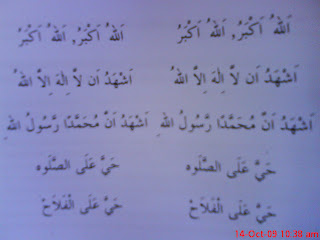 اَللهُ اَكْبَرُ, اَللهُ اَكْبَرُ اَللهُ اَكْبَرُ, اَللهُ اَكْبَرُ
اَشْهَدُ اَن لاَّ اِلٰهَ اِلاَّ اللهُ اَشْهَدُ اَن لاَّ اِلٰهَ اِلاَّ اللهُ
اَشْهَدُ اَنَّ مُحَمَّدًا رَّسُولُ اللهِ اَشْهَدُ اَنَّ مُحَمَّدًا رَّسُولُ اللهِ
حَيَّ عَلَى الصَّلٰوه حَيَّ عَلَى الصَّلٰوه
حَيَّ عَلَى الْفَلاَحْ حَيَّ عَلَى الْفَلاَحْ
14-Oct-09 10:38 am